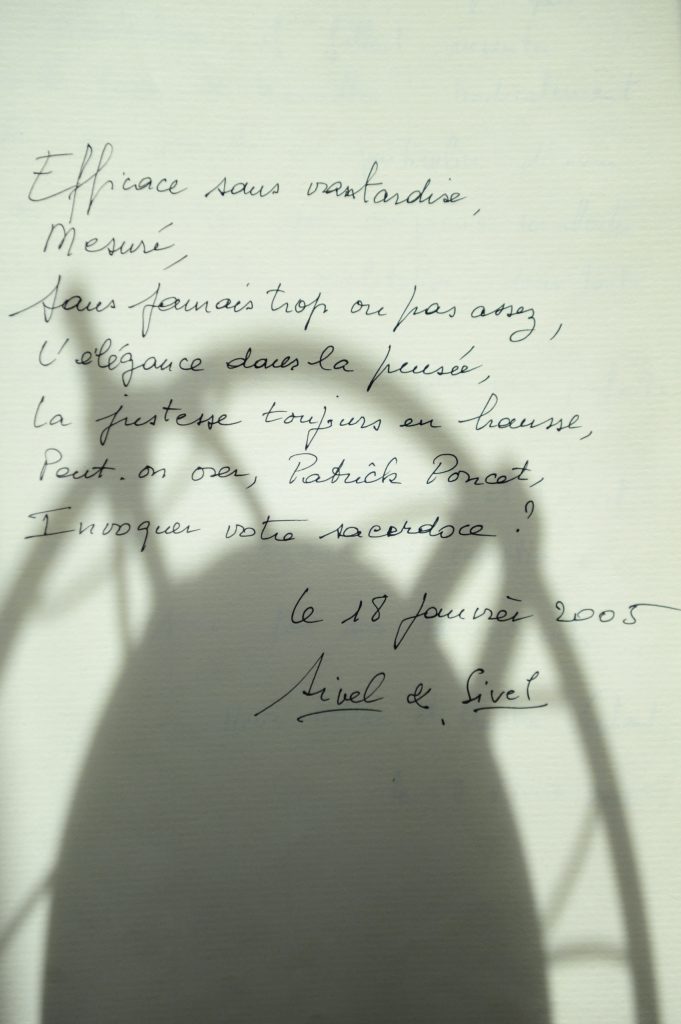 Efficace sans vantardise,
Mesuré,
Sans jamais trop ou pas assez,
L'élégance dans la pensée,
La justesse toujours en hausse,
Peut-on oser, Patrick Poncet,
Invoquer votre sacerdoce ?
le 18 Janvier 2005
Sivel & Sivel